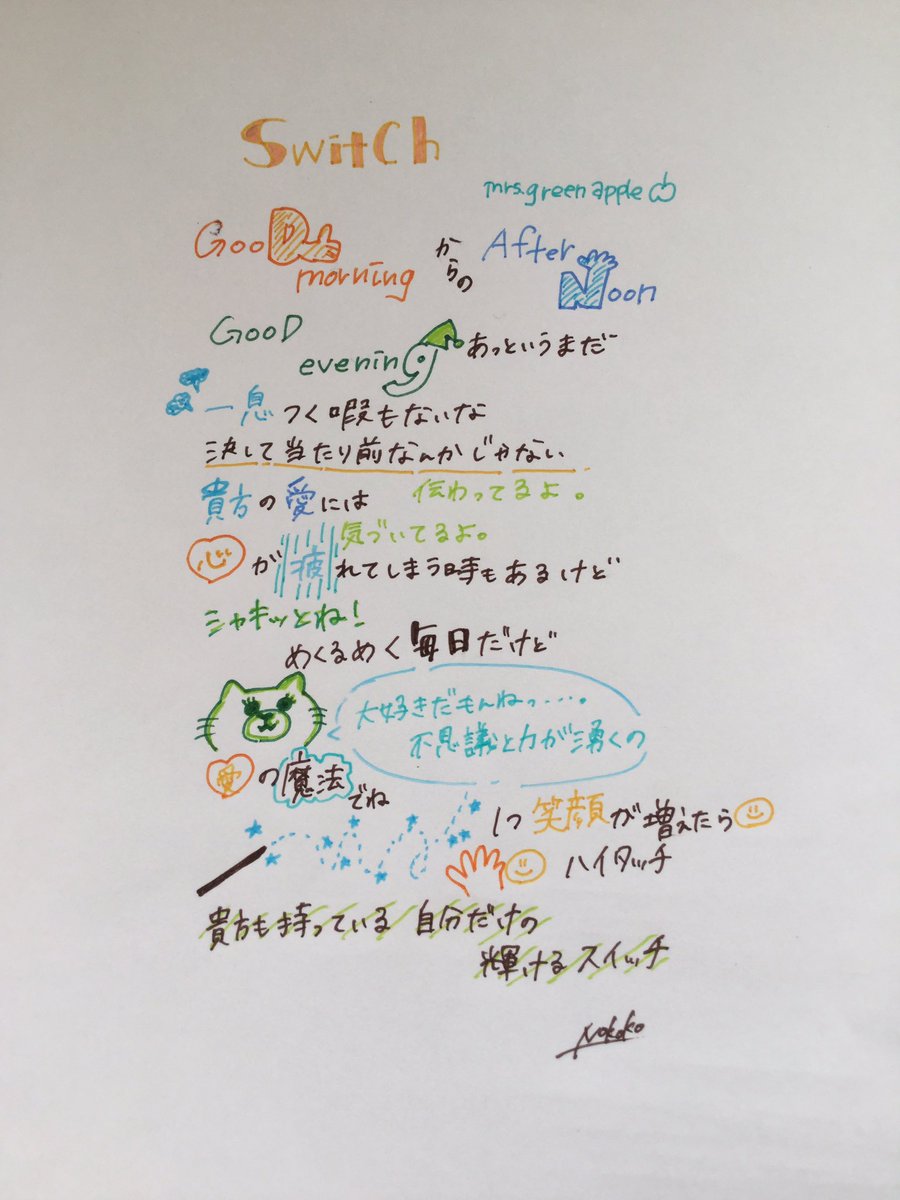 SwitCh
mrs.green apple
GooD morning からの After Noon
GooD evening あっというまだ
一息つく暇もないな
決して当たり前なんかじゃない
貴方の愛には 伝わってるよ。
気づいてるよ。
心が疲れてしまう時もあるけど
シャキッとね!
めくるめく毎日だけど
大好きだもんねっ....。
不思議と力が湧くの
愛の魔法でね
1つ笑顔が増えたら
ハイタッチ
貴方も持っている 自分だけの
輝けるスイッチ
Nokoko